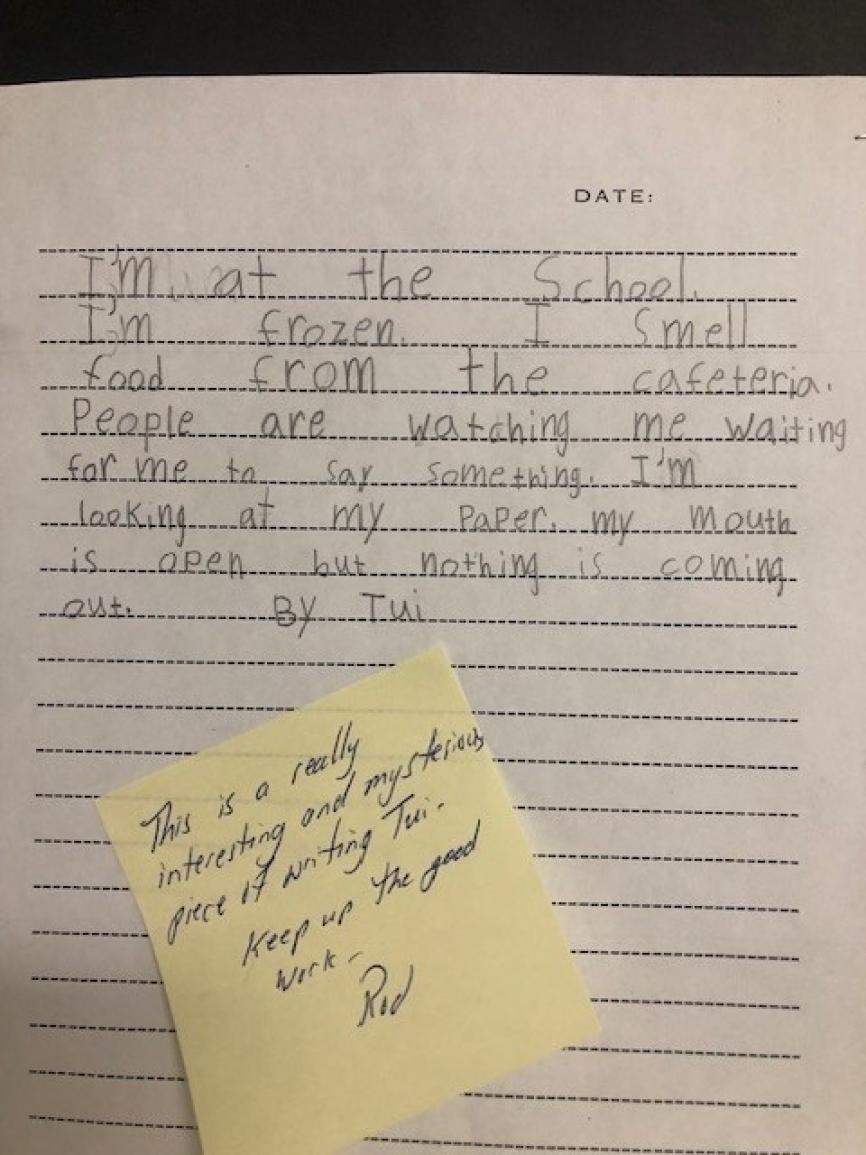 DATE:
I'm at the School.
I'm frozen. I smell
food from the cafeteria.
People are watching me waiting
for me to say something. I'm
looking at my paper. my mouth
is open but nothing is coming
out. By Tui
This is a really
interesting and mysterious
piece of writing Tui.
Keep up the good
work.
Rod